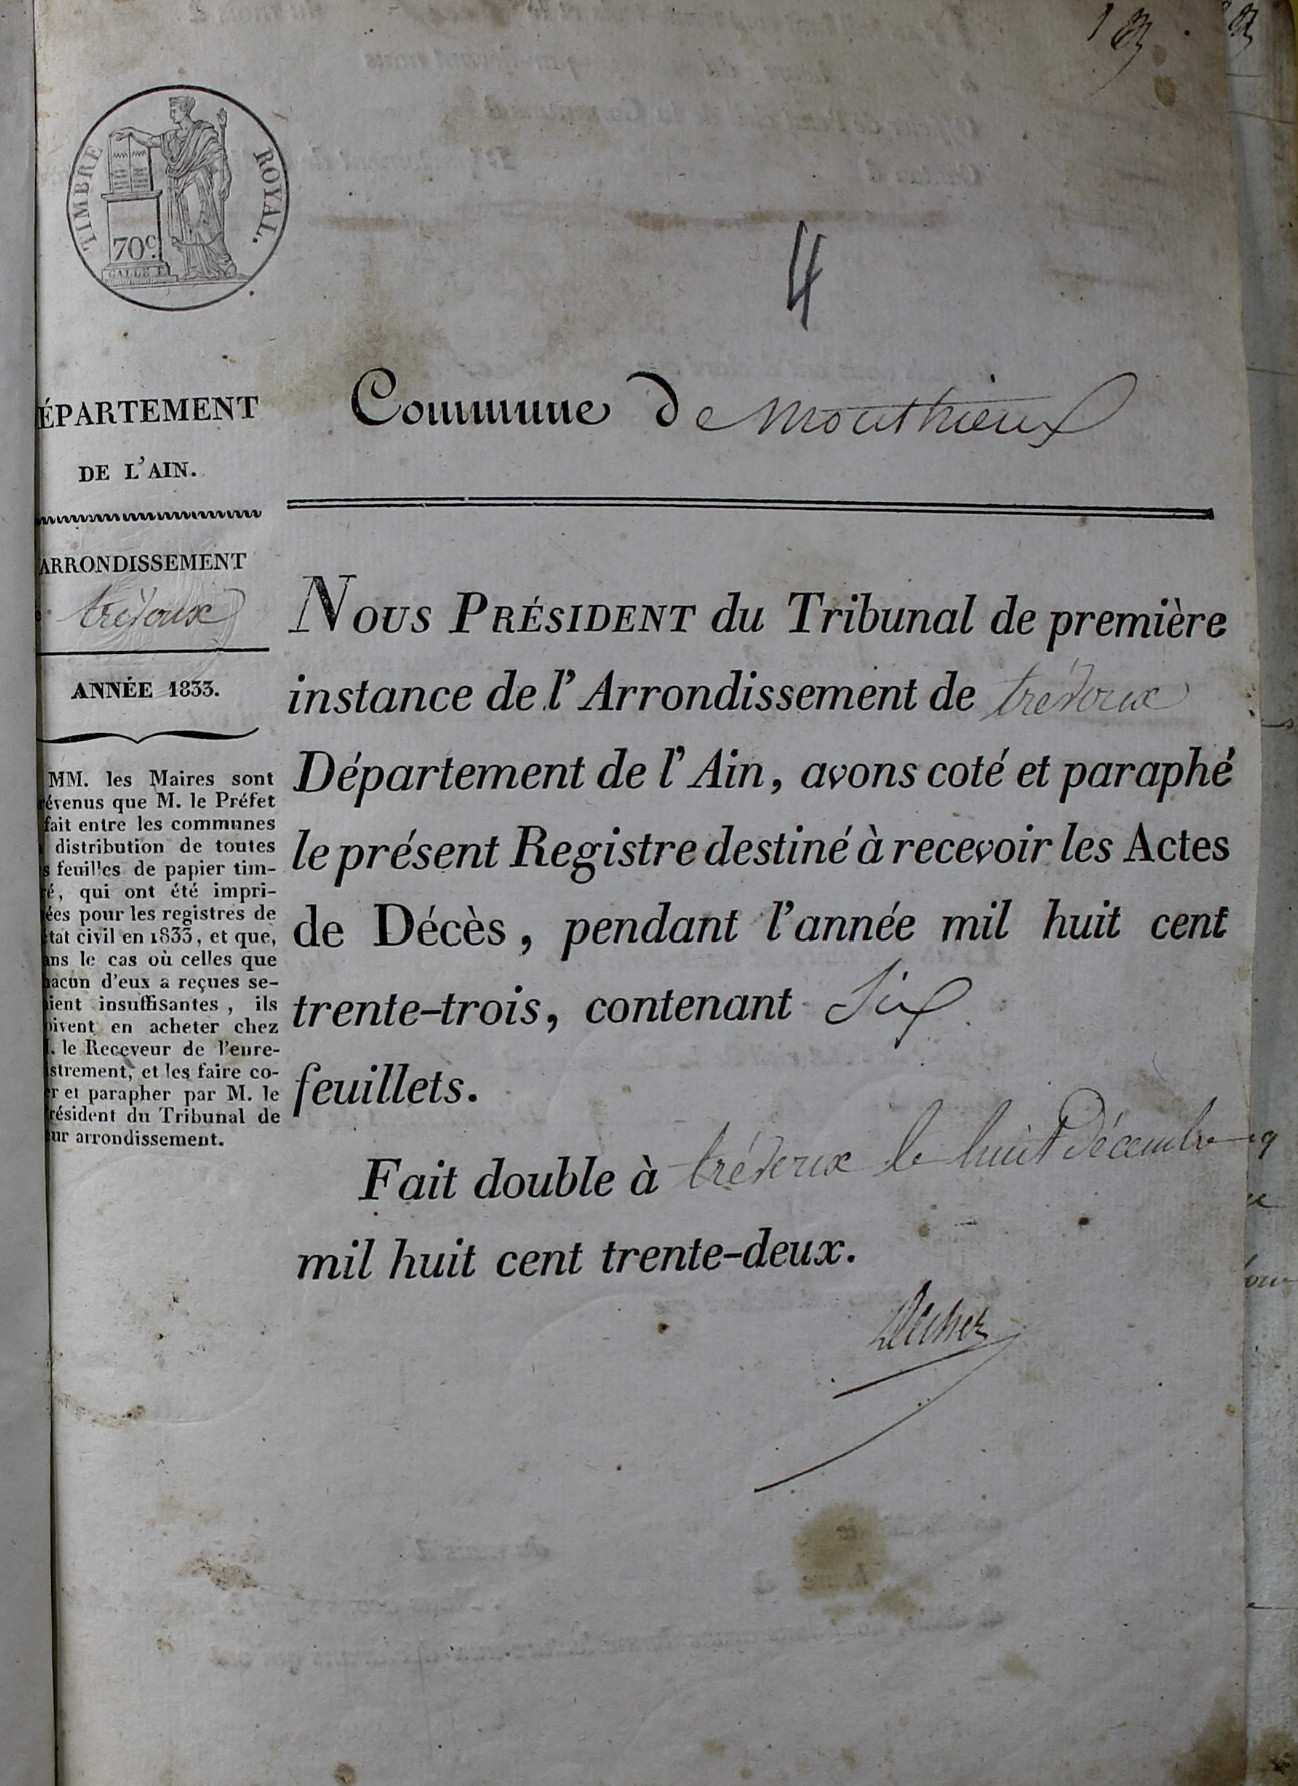 TIMBRE ROYAL.
70c.
GALLE F.
4
ÉPARTEMENT
DE L'AIN.
ARRONDISSEMENT
trévoux
ANNÉE 1833.
MM. les Maires sont
révenus que M. le Préfet
fait entre les communes
distribution de toutes
s feuilles de papier tim-
ré, qui ont été impri-
ées pour les registres de
état civil en 1833, et que,
ans le cas où celles que
hacun d'eux a reçues se-
ient insuffisantes, ils
oivent en acheter chez
. le Receveur de l'enre-
strement, et les faire co-
er et parapher par M. le
résident du Tribunal de
ur arrondissement.
Commune de Monthieux
Nous Président du Tribunal de première
instance de l'Arrondissement de trévoux
Département de l'Ain, avons coté et paraphé
le présent Registre destiné à recevoir les Actes
de Décès, pendant l'année mil huit cent
trente-trois, contenant Six
feuillets.
Fait double à trévoux le huit décembre
mil huit cent trente-deux.